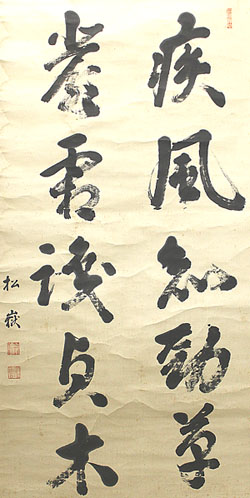 疾風知勁草
嚴霜識貞木
松嶽